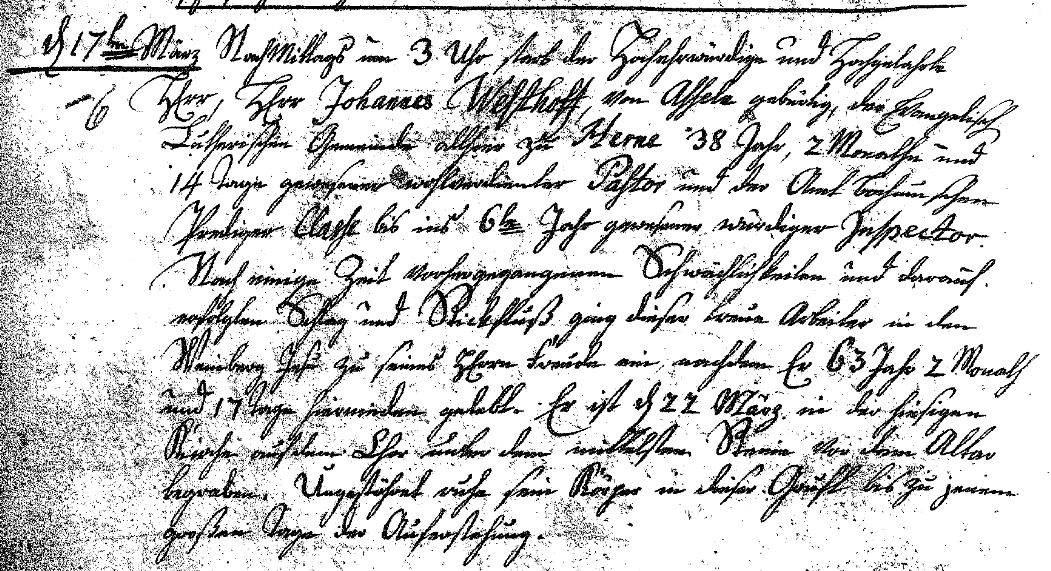 d 17ten März NachMittags um 3 Uhr starb der Hochehrwürdige und Hochgelahrte
6 Herr, Herr Johannes Westhoff, von Asseln gebürtig, der Evangelisch
Lutherischen Gemeinde allhier zu Herne 38 Jahr, 2 Monathe und
14 Tage gewesener wohlverdienter Pastor und der Amt Bochumschen
Prediger Classe bis ins 6te Jahr gewesener würdiger Inspector.
Nach einige Zeit vorhergegangenen Schwächlichkeiten und darauf
erfolgten Schlag und Stickfluß ging dieser treue Arbeiter in den
Weinberg Jesu zu seines Herrn Freude ein, nachdem Er 63 Jahr 2 Monath
und 17 Tage hienieden gelebt. Er ist d 22 März in der hiesigen
Kirche auf dem Chor unter dem mittelsten Steine vor dem Altar
begraben. Ungestöhret ruhe sein Körper in dieser Gruft bis zu jenem
großen Tage der Auferstehung.